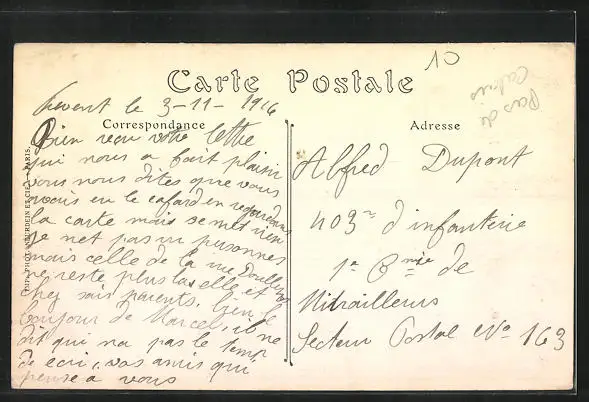 Carte Postale
10
Pas de
Calais
Frevent le 3-11-1916
Correspondance
Bien reçu votre lettre
qui nous a fait plaisir
vous nous dites que vous
avous eu le cafard en regardant
la carte mais se net rien
je net pas vu personnes
mais celle de la rue Doullens
ne reste plus la elle et
chez sais parents. bien le
bonjour de Marcel, il ne
dit qui na pas le temp
de ecri, vos amis qui
pense a vous
Adresse
Alfred Dupont
403me d'infanterie
1e Cnie de
Mitrailleurs
Secteur Postal No 163
IMP. PHOT. NEURDEIN ET CIE. - PARIS.